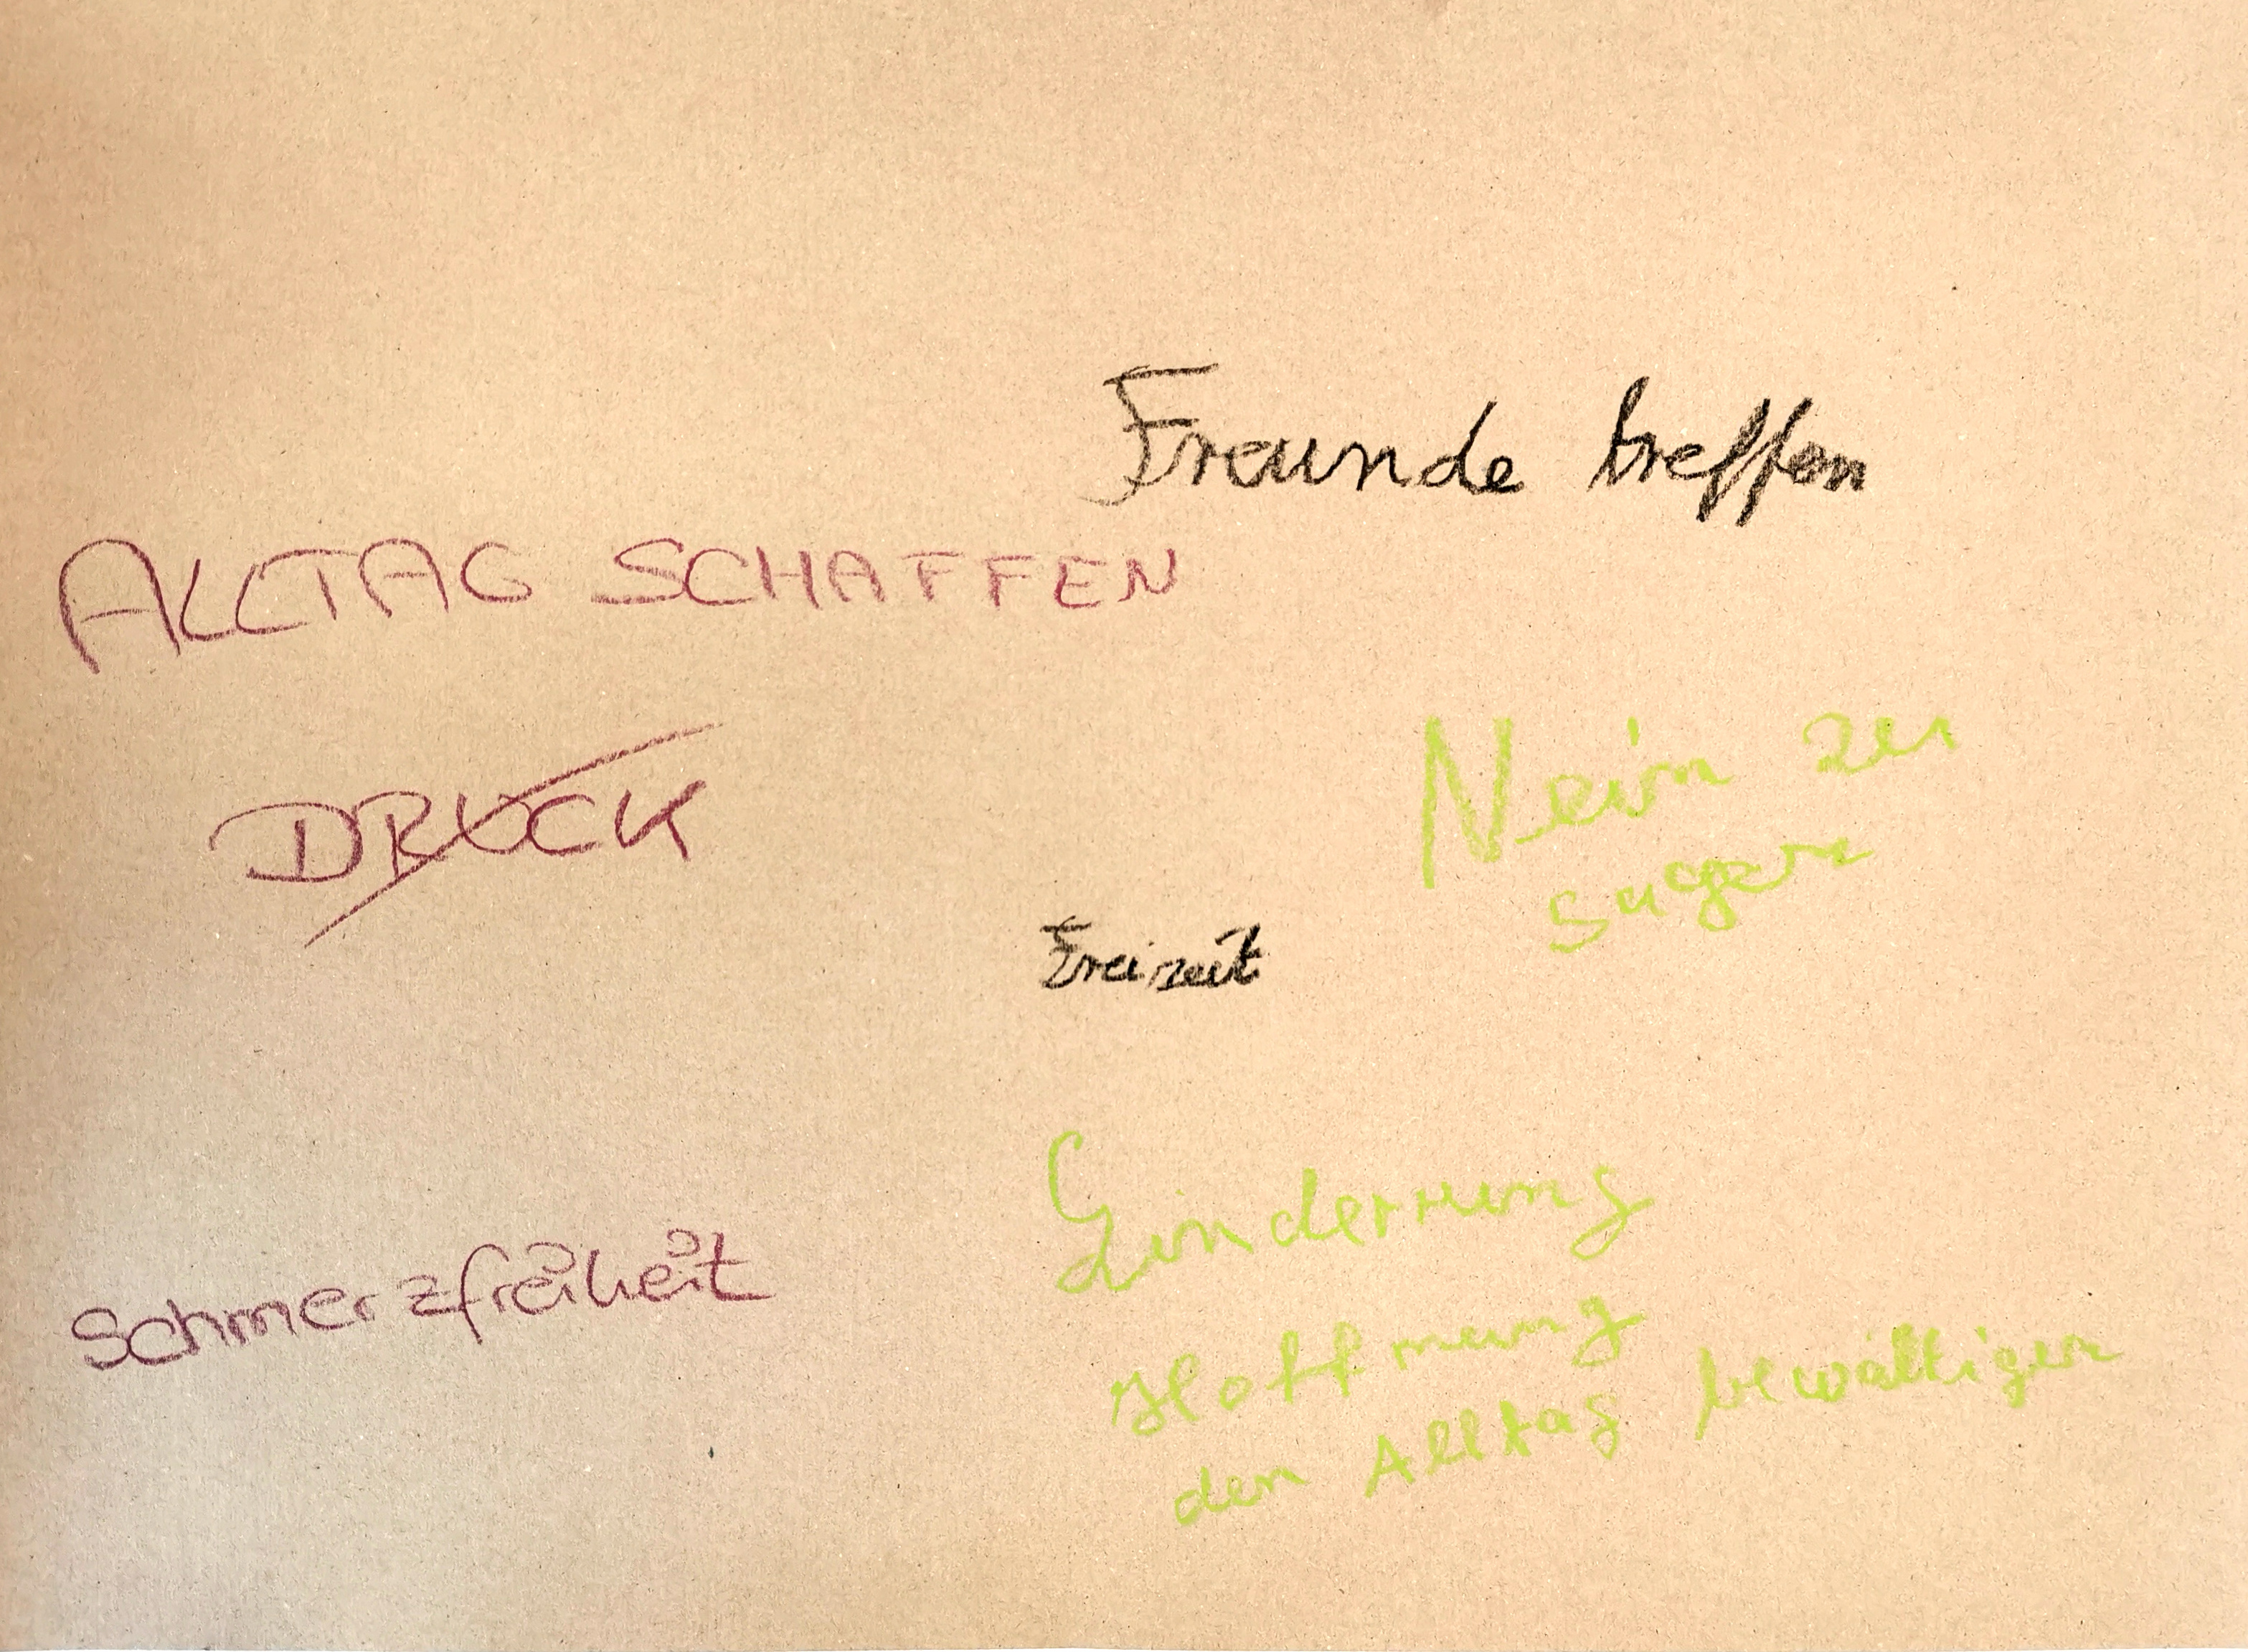 Freunde treffen
ALLTAG SCHAFFEN
Nein zu
sagen
DRUCK
Freizeit
Linderrung
Schmerzfreiheit
Hoffnung
den Alltag bewältigen